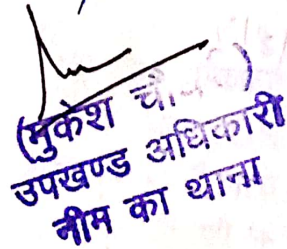 (मुकेश )
उपखण्ड अधिकारी
नीम का थाना